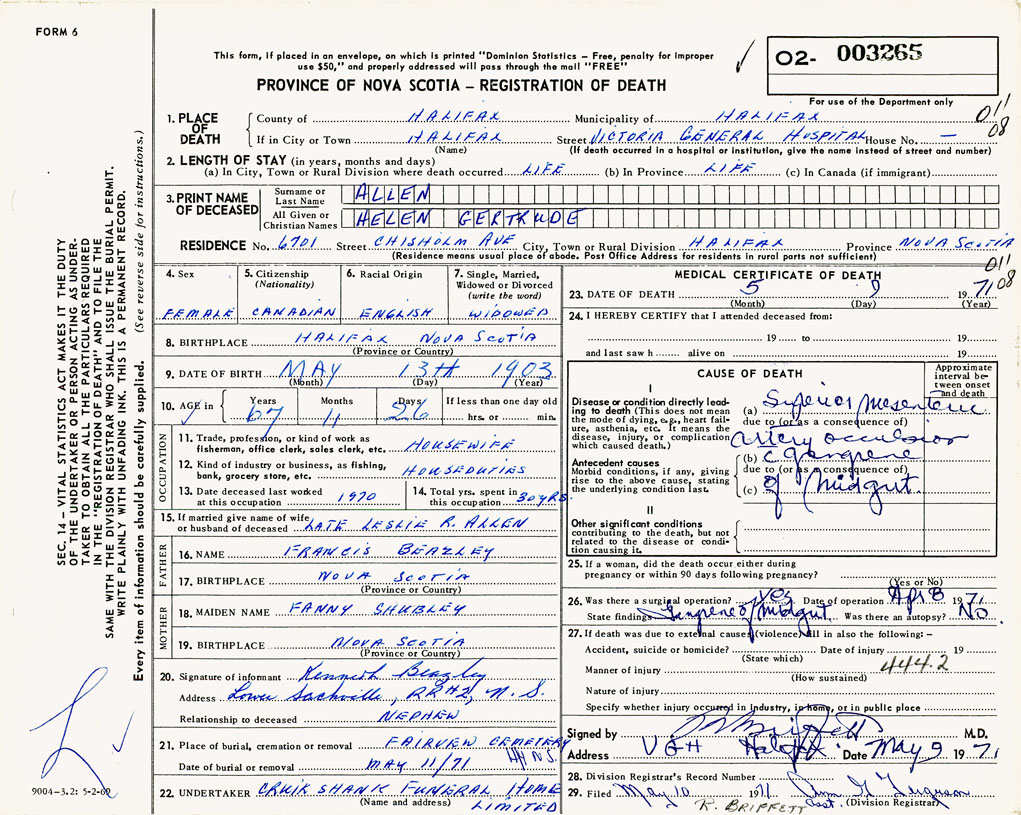 FORM 6
This form, if placed in an envelope, on which is printed "Dominion Statistics – Free, penalty for improper
use $50," and properly addressed will pass through the mail "FREE"
PROVINCE OF NOVA SCOTIA – REGISTRATION OF DEATH
02- 003265
For use of the Department only
011
08
1. PLACE OF DEATH
County of HALIFAX Municipality of HALIFAX
If in City or Town HALIFAX Street VICTORIA GENERAL HOSPITAL House No. —
(Name) (If death occurred in a hospital or institution, give the name instead of street and number)
2. LENGTH OF STAY (in years, months and days)
(a) In City, Town or Rural Division where death occurred LIFE (b) In Province LIFE (c) In Canada (if immigrant)
3. PRINT NAME OF DECEASED
Surname or Last Name ALLEN
All Given or Christian Names HELEN GERTRUDE
RESIDENCE No. 6701 Street CHISHOLM AVE City, Town or Rural Division HALIFAX Province NOVA SCOTIA
(Residence means usual place of abode. Post Office Address for residents in rural parts not sufficient)
011
08
4. Sex
FEMALE
5. Citizenship
(Nationality)
CANADIAN
6. Racial Origin
ENGLISH
7. Single, Married,
Widowed or Divorced
(write the word)
WIDOWED
8. BIRTHPLACE HALIFAX NOVA SCOTIA
(Province or Country)
9. DATE OF BIRTH MAY 13TH 1903
(Month) (Day) (Year)
10. AGE in
Years Months Days If less than one day old
67 11 26 hrs. or min.
OCCUPATION
11. Trade, profession, or kind of work as
fisherman, office clerk, sales clerk, etc. HOUSEWIFE
12. Kind of industry or business, as fishing,
bank, grocery store, etc. HOUSEDUTIES
13. Date deceased last worked
at this occupation 1970
14. Total yrs. spent in
this occupation 30 YRS.
15. If married give name of wife
or husband of deceased LATE LESLIE R. ALLEN
FATHER
16. NAME FRANCIS BEAZLEY
17. BIRTHPLACE NOVA SCOTIA
(Province or Country)
MOTHER
18. MAIDEN NAME FANNY SHUBLEY
19. BIRTHPLACE NOVA SCOTIA
(Province or Country)
20. Signature of informant Kenneth Beazley
Address Lower Sackville, RR#2, N.S.
Relationship to deceased NEPHEW
21. Place of burial, cremation or removal FAIRVIEW CEMETERY
Hfx N.S.
Date of burial or removal MAY 11/71
22. UNDERTAKER CRUIKSHANK FUNERAL HOME
(Name and address) LIMITED
MEDICAL CERTIFICATE OF DEATH
23. DATE OF DEATH 5 9 19 71
(Month) (Day) (Year)
24. I HEREBY CERTIFY that I attended deceased from:
19 to 19
and last saw h alive on 19
CAUSE OF DEATH
Approximate
interval be-
tween onset
and death
I
Disease or condition directly lead-
ing to death (This does not mean
the mode of dying, e.g., heart fail-
ure, asthenia, etc. It means the
disease, injury, or complication
which caused death.)
(a) Superior mesenteric
due to (or as a consequence of)
artery occlusion
Antecedent causes
Morbid conditions, if any, giving
rise to the above cause, stating
the underlying condition last.
(b) c gangrene
due to (or as a consequence of)
(c) of midgut.
II
Other significant conditions
contributing to the death, but not
related to the disease or condi-
tion causing it.
25. If a woman, did the death occur either during
pregnancy or within 90 days following pregnancy?
(Yes or No)
26. Was there a surgical operation? yes Date of operation Apr 8 19 71
State findings Gangrene of midgut Was there an autopsy? No
27. If death was due to external causes (violence) fill in also the following: –
Accident, suicide or homicide? Date of injury 19
(State which)
Manner of injury 444.2
(How sustained)
Nature of injury
Specify whether injury occurred in industry, in home, or in public place
Signed by M.D.
Address V G H Halifax Date May 9 19 71
28. Division Registrar's Record Number
29. Filed May 10 1971 Ferguson
R. BRIFFETT Asst. (Division Registrar)
SEC. 14 – VITAL STATISTICS ACT MAKES IT THE DUTY
OF THE UNDERTAKER OR PERSON ACTING AS UNDER-
TAKER TO OBTAIN ALL THE PARTICULARS REQUIRED
IN THE "REGISTRATION OF DEATH" AND TO FILE THE
SAME WITH THE DIVISION REGISTRAR WHO SHALL ISSUE THE BURIAL PERMIT.
WRITE PLAINLY WITH UNFADING INK. THIS IS A PERMANENT RECORD.
Every item of information should be carefully supplied. (See reverse side for instructions.)
9004-3.2: 5-2-69